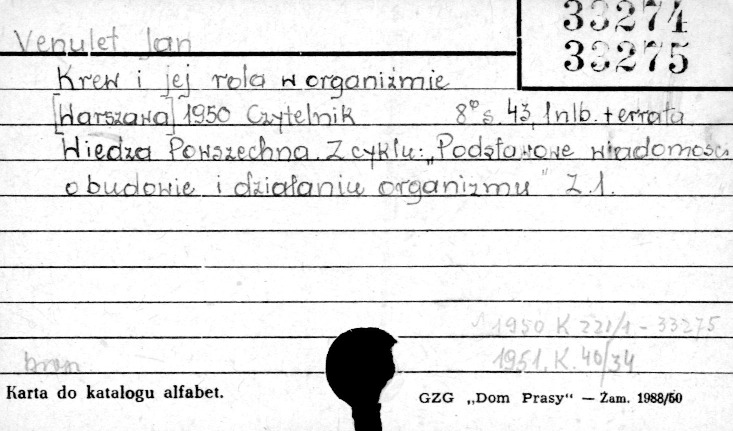 33274
33275
Venulet Jan
Krew i jej rola w organiźmie
[Warszawa] 1950 Czytelnik 8° s. 43, 1nlb. + errata
Wiedza Powszechna. Z cyklu: „Podstawowe wiadomości
o budowie i działaniu organizmu" Z. 1.
1950 K 221/1 - 33275
bron 1951. K. 40/34
Karta do katalogu alfabet.
GZG „Dom Prasy“ — Zam. 1988/50